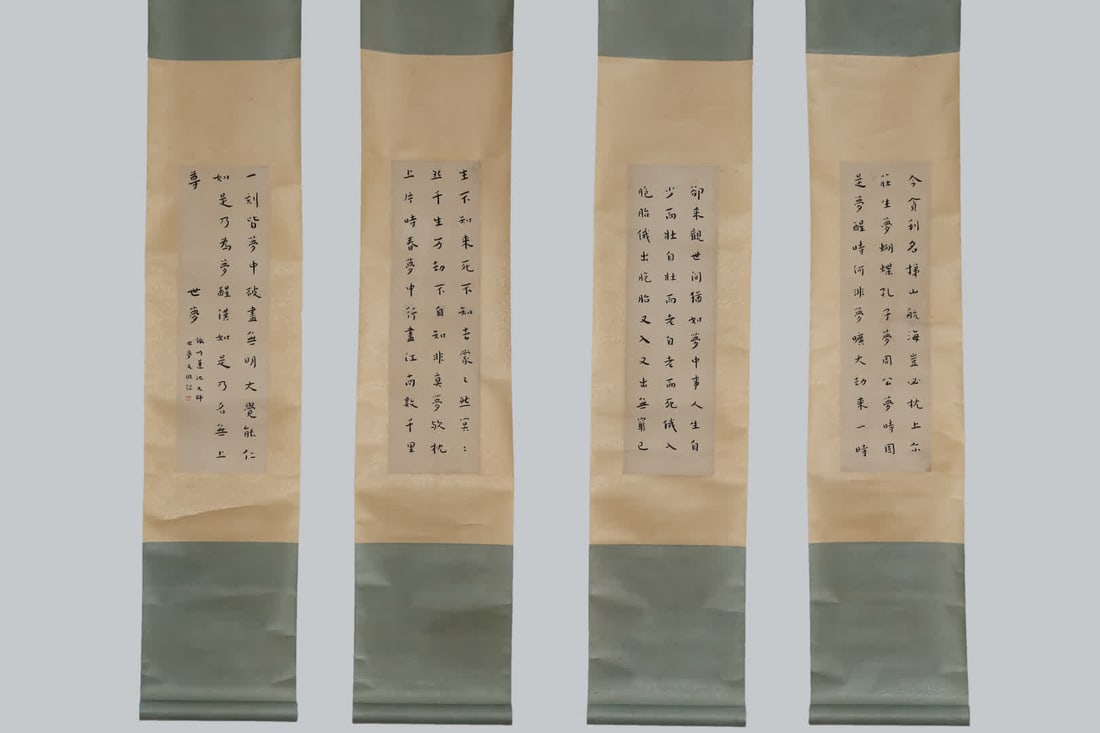 今貪利名梯山航海豈必枕上尔
莊生夢蝴蝶孔子夢周公夢時固
是夢醒時何非夢曠大劫來一時
卻來觀世間猶如夢中事人生自
少而壯自壯而老自老而死俄入
胞胎俄出胞胎又入又出無窮已
生不知來死不知去蒙〻然冥〻
然千生万劫不自知非真夢歟枕
上片時春夢中行盡江南數千里
一刻皆夢中破盡無明大覺能仁
如是乃為夢醒漢如是乃名無上
尊 世夢
蓮池大師
世夢文